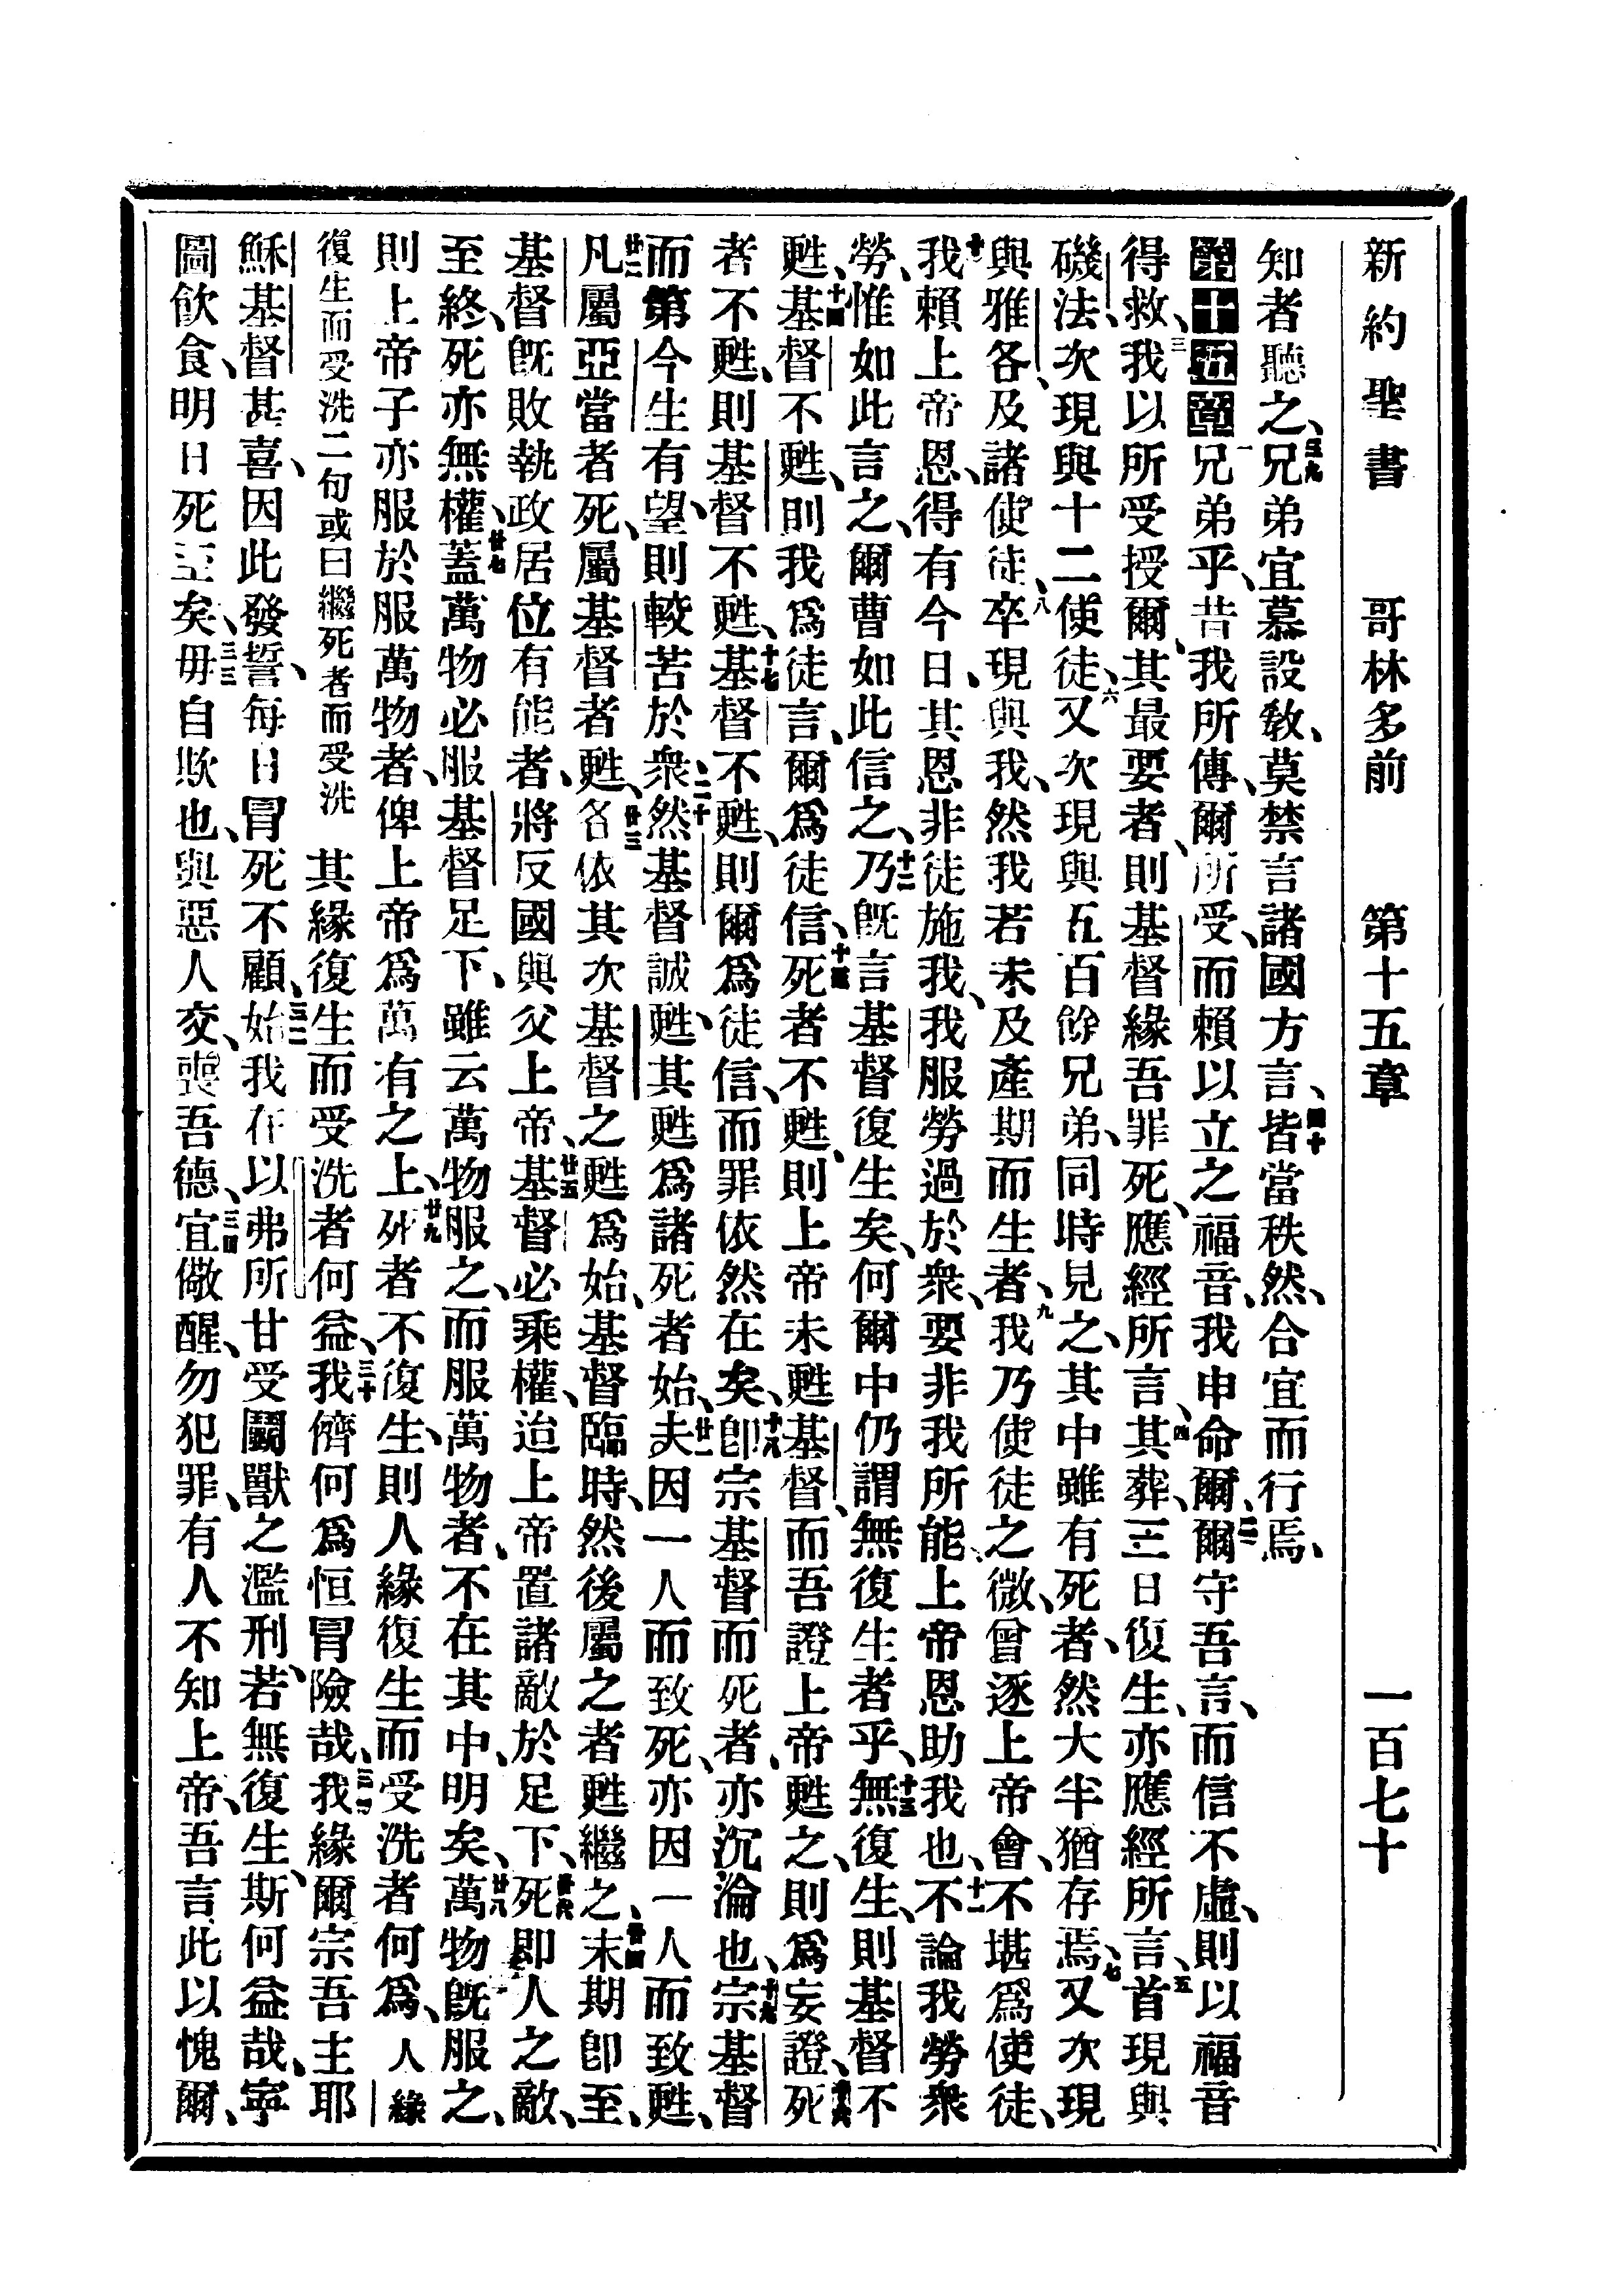 新約聖書 哥林多前 第十五章 一百七十
知者聽之、三九兄弟宜慕設敎、莫禁言諸國方言、四十皆當秩然、合宜而行焉、
第十五章一兄弟乎、昔我所傳、爾所受、而賴以立之福音、我申命爾、二爾守吾言、而信不虛、則以福音
得救、三我以所受授爾、其最要者、則基督緣吾罪死、應經所言、四其葬、三日復生、亦應經所言、五首現與
磯法、次現與十二使徒、六又次現與五百餘兄弟、同時見之、其中雖有死者、然大半猶存焉、七又次現
與雅各、及諸使徒、八卒現與我、然我若未及產期而生者、九我乃使徒之微、曾逐上帝會、不堪爲使徒、
十我賴上帝恩、得有今日、其恩非徒施我、我服勞過於衆、要非我所能、上帝恩助我也、十一不論我勞衆
勞、惟如此言之、爾曹如此信之、十二乃旣言基督復生矣、何爾中仍謂無復生者乎、十三無復生、則基督不
甦、十四基督不甦、則我爲徒言、爾爲徒信、十五死者不甦、則上帝未甦基督、而吾證上帝甦之、則爲妄證、十六死
者不甦、則基督不甦、十七基督不甦、則爾爲徒信、而罪依然在矣、十八卽宗基督而死者、亦沉淪也、十九宗基督
而第今生有望、則較苦於衆、二十然基督誠甦、其甦爲諸死者始、廿一夫因一人而致死、亦因一人而致甦、
廿二凡屬亞當者死、屬基督者甦、廿三各依其次、基督之甦爲始、基督臨時、然後屬之者甦繼之、廿四末期卽至、
基督旣敗執政居位有能者、將反國與父上帝、廿五基督必乘權、迨上帝置諸敵於足下、廿六死卽人之敵、
至終、死亦無權、廿七蓋萬物必服基督足下、雖云萬物服之、而服萬物者、不在其中、明矣、廿八萬物旣服之、
則上帝子亦服於服萬物者、俾上帝爲萬有之上、廿九死者不復生、則人緣復生而受洗者何爲、人緣
復生而受洗二句或曰繼死者而受洗 其緣復生而受洗者何益、三十我儕何爲恒冒險哉、三一我緣爾宗吾主耶
穌基督甚喜、因此發誓、每日冒死不顧、三二始我在以弗所甘受鬭獸之濫刑、若無復生、斯何益哉、寧
圖飮食、明日死亡矣、三三毋自欺也、與惡人交、喪吾德、三四宜儆醒、勿犯罪、有人不知上帝、吾言此以愧爾、